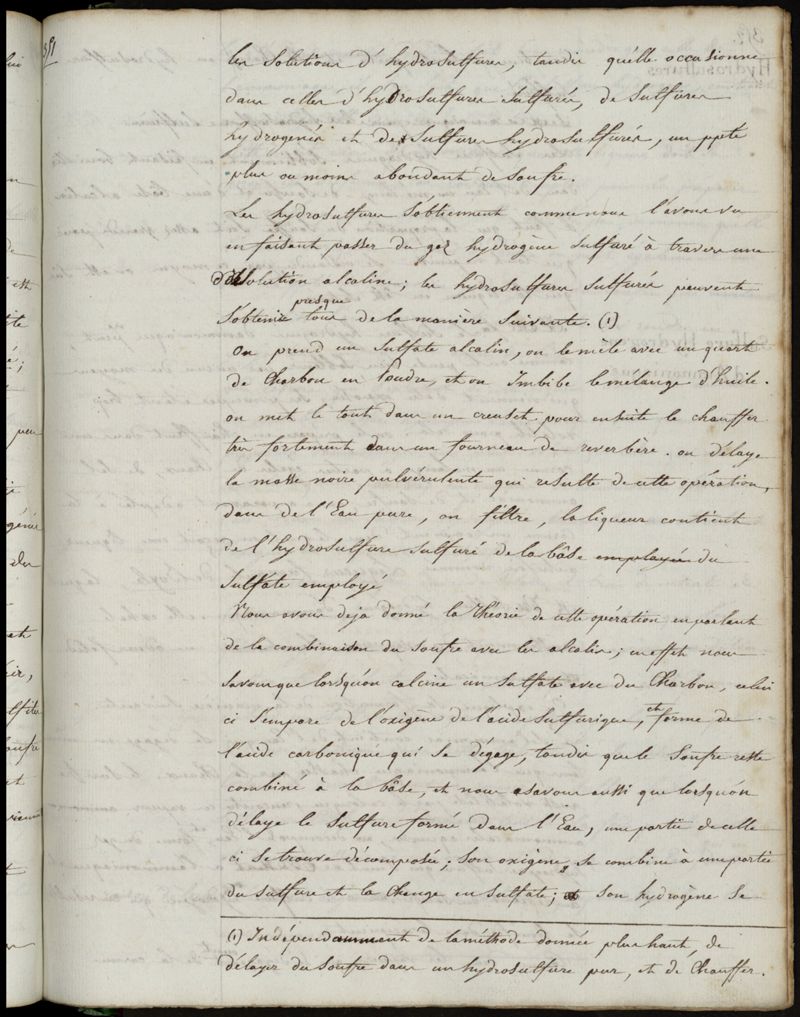 351
les solutions d'hydrosulfures, tandis qu'elle occasionne
dans celles d'hydrosulfures sulfurés, de sulfures
hydrogénés et de sulfures hydrosulfurés, un ppté
plus ou moins abondant de soufre.
Les hydrosulfures s'obtiennent comme nous l'avons vu
en faisant passer du gaz hydrogène sulfuré à travers une
dissolution alcaline; les hydrosulfures sulfurés peuvent
presque
s'obtenir tous de la manière suivante. (1)
On prend un sulfate alcalin, on le mêle avec un quart
de Charbon en Poudre, et on Imbibe le mélange d'huile.
on met le tout dans un creuset pour ensuite le chauffer
très fortement dans un fourneau de reverbère. on délaye
la masse noire pulvérulente qui resulte de cette opération,
dans de l'Eau pure, on filtre, la liqueur contient
de l'hydrosulfure sulfuré de la bâse employée du
sulfate employé
Nous avons deja donné la théorie de cette opération en parlant
de la combinaison du soufre avec les alcalis; en effet nous
savons que lorsqu'on calcine un sulfate avec du Charbon, celui
ci s'empare de l'oxigène de l'acide sulfurique, et forme de
l'acide carbonique qui se dégage, tandis que le soufre reste
combiné à la bâse, et nous savons aussi que lorsqu'on
délaye le sulfure formé dans l'Eau, une partie de celle
ci se trouve décomposée; son oxigène se combine à une partie
du sulfure et la change en sulfate; son hydrogène se
(1) Indépendamment de la méthode donnée plus haut, de
délayer du soufre dans un hydrosulfure pur, et de Chauffer.